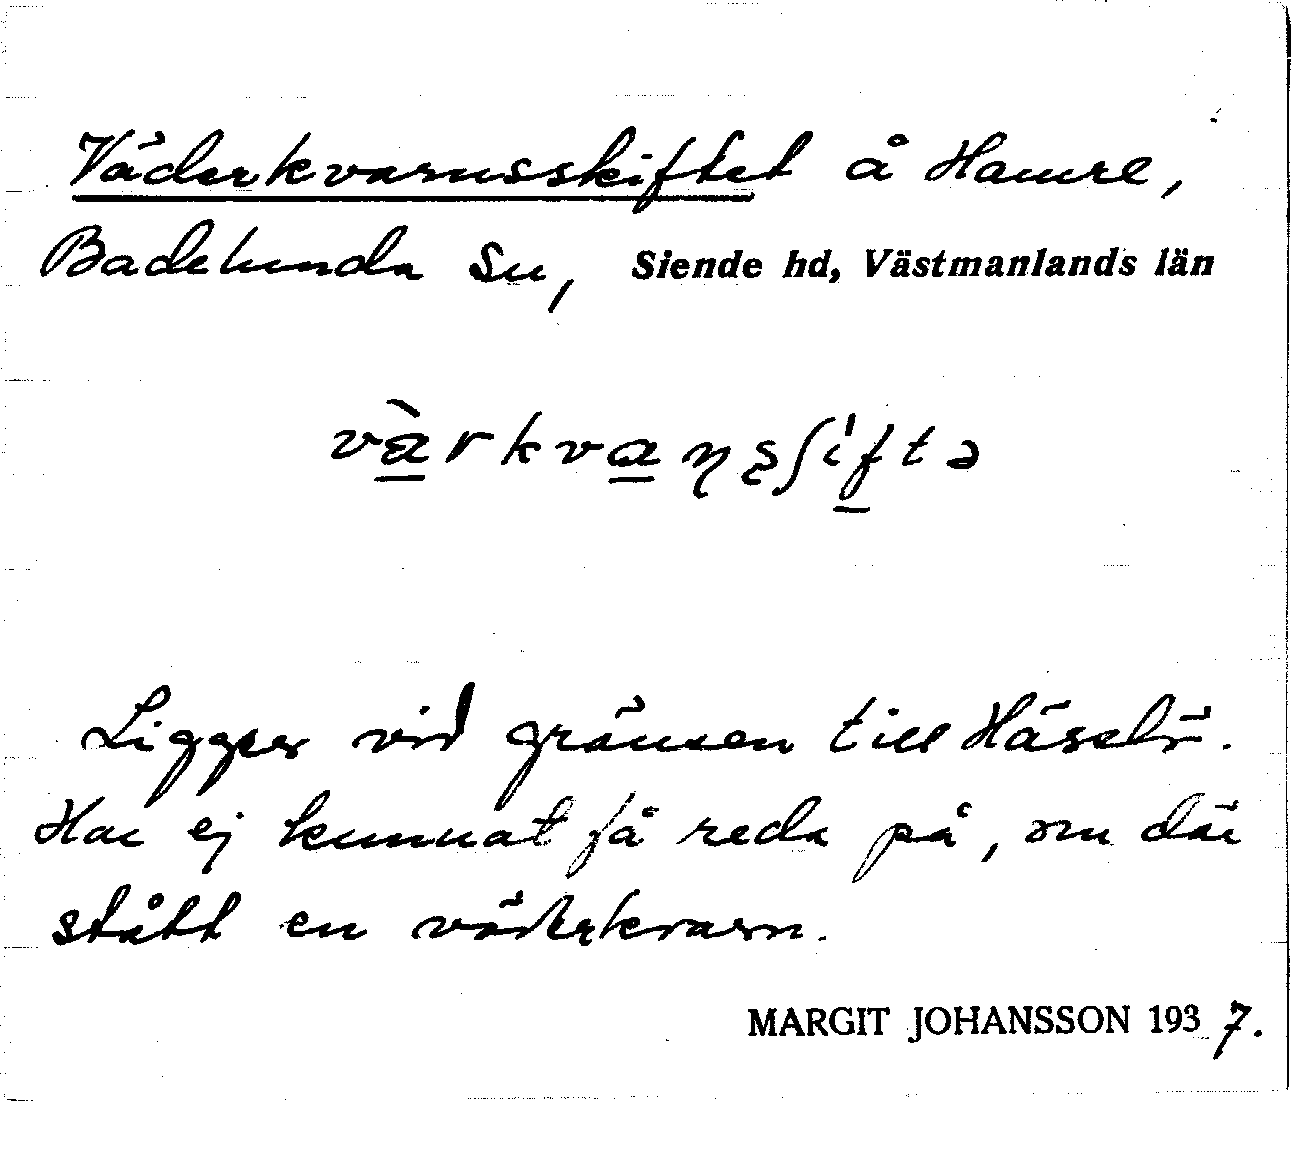 Väderkvarnsskiftet å Hamre,
Badelunda sn, Siende hd, Västmanlands län
Ligger vid gränsen till Häselö.
Har ej kunnat få reda på, om där
stått en väderkvarn.
MARGIT JOHANSSON 1937.